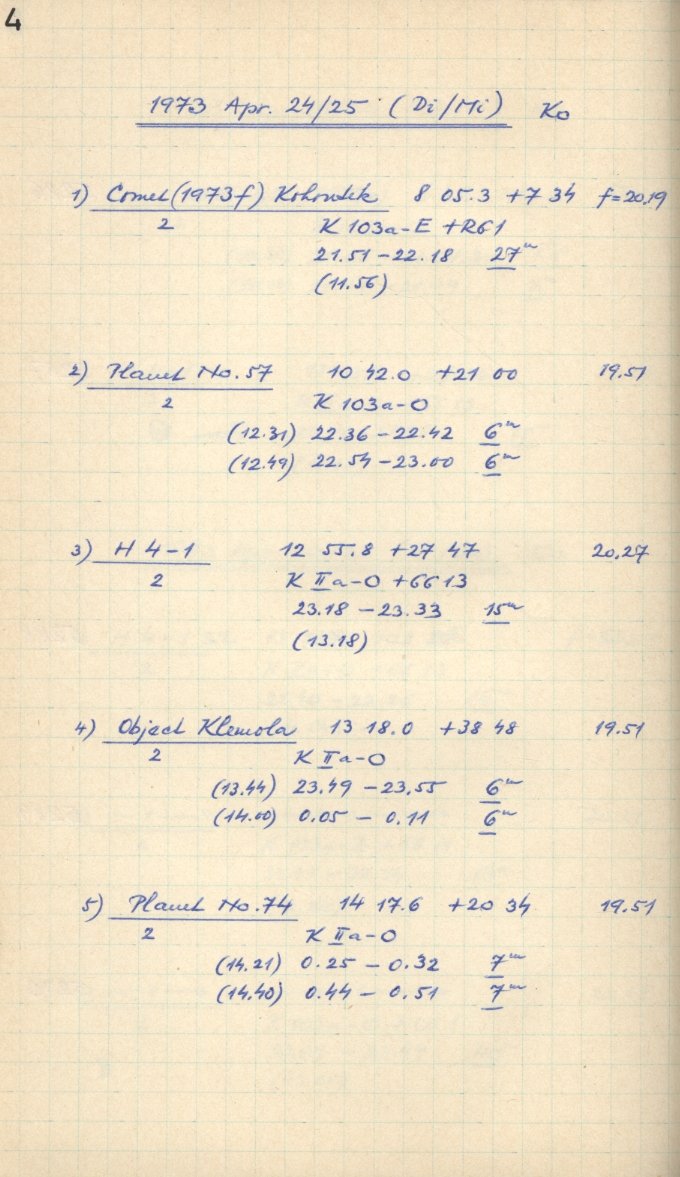 4
1973 Apr. 24/25 (Di/Mi) Ko
1) Comet (1973f) Kohoutek 8 05.3 +7 34 f=20.19
2 K 103a-E +RG1
21.51 - 22.18 27m
(11.56)
2) Planet No. 57 10 42.0 +21 00 19.51
2 K 103a-O
(12.31) 22.36 - 22.42 6m
(12.49) 22.54 - 23.00 6m
3) H 4-1 12 55.8 +27 47 20.27
2 K IIa-O +GG13
23.18 - 23.33 15m
(13.18)
4) Object Klemola 13 18.0 +38 48 19.51
2 K IIa-O
(13.44) 23.49 - 23.55 6m
(14.00) 0.05 - 0.11 6m
5) Planet No. 74 14 17.6 +20 34 19.51
2 K IIa-O
(14.21) 0.25 - 0.32 7m
(14.40) 0.44 - 0.51 7m